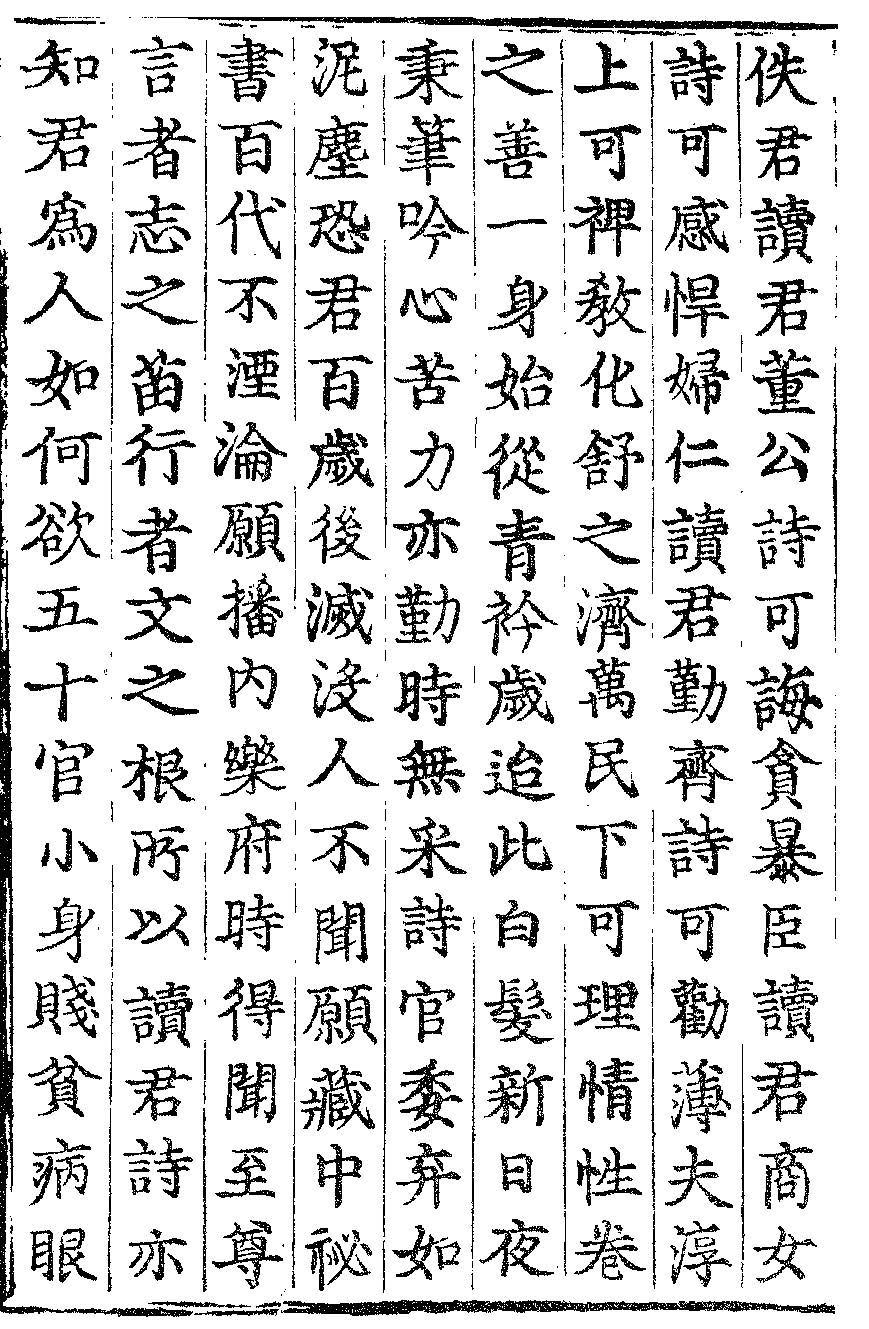 佚君讀君董公詩可誨貪暴臣讀君商女
詩可感悍婦仁讀君勤齊詩可勸薄夫淳
上可裨教化舒之濟萬民下可理情性卷
之善一身始從青衿歲迨此白髮新日夜
秉筆吟心苦力亦勤時無采詩官委弃如
泥塵恐君百歲後滅沒人不聞願藏中祕
書百代不湮淪願播内樂府時得聞至尊
言者志之苗行者文之根所以讀君詩亦
知君為人如何欲五十官小身賤貧病眼